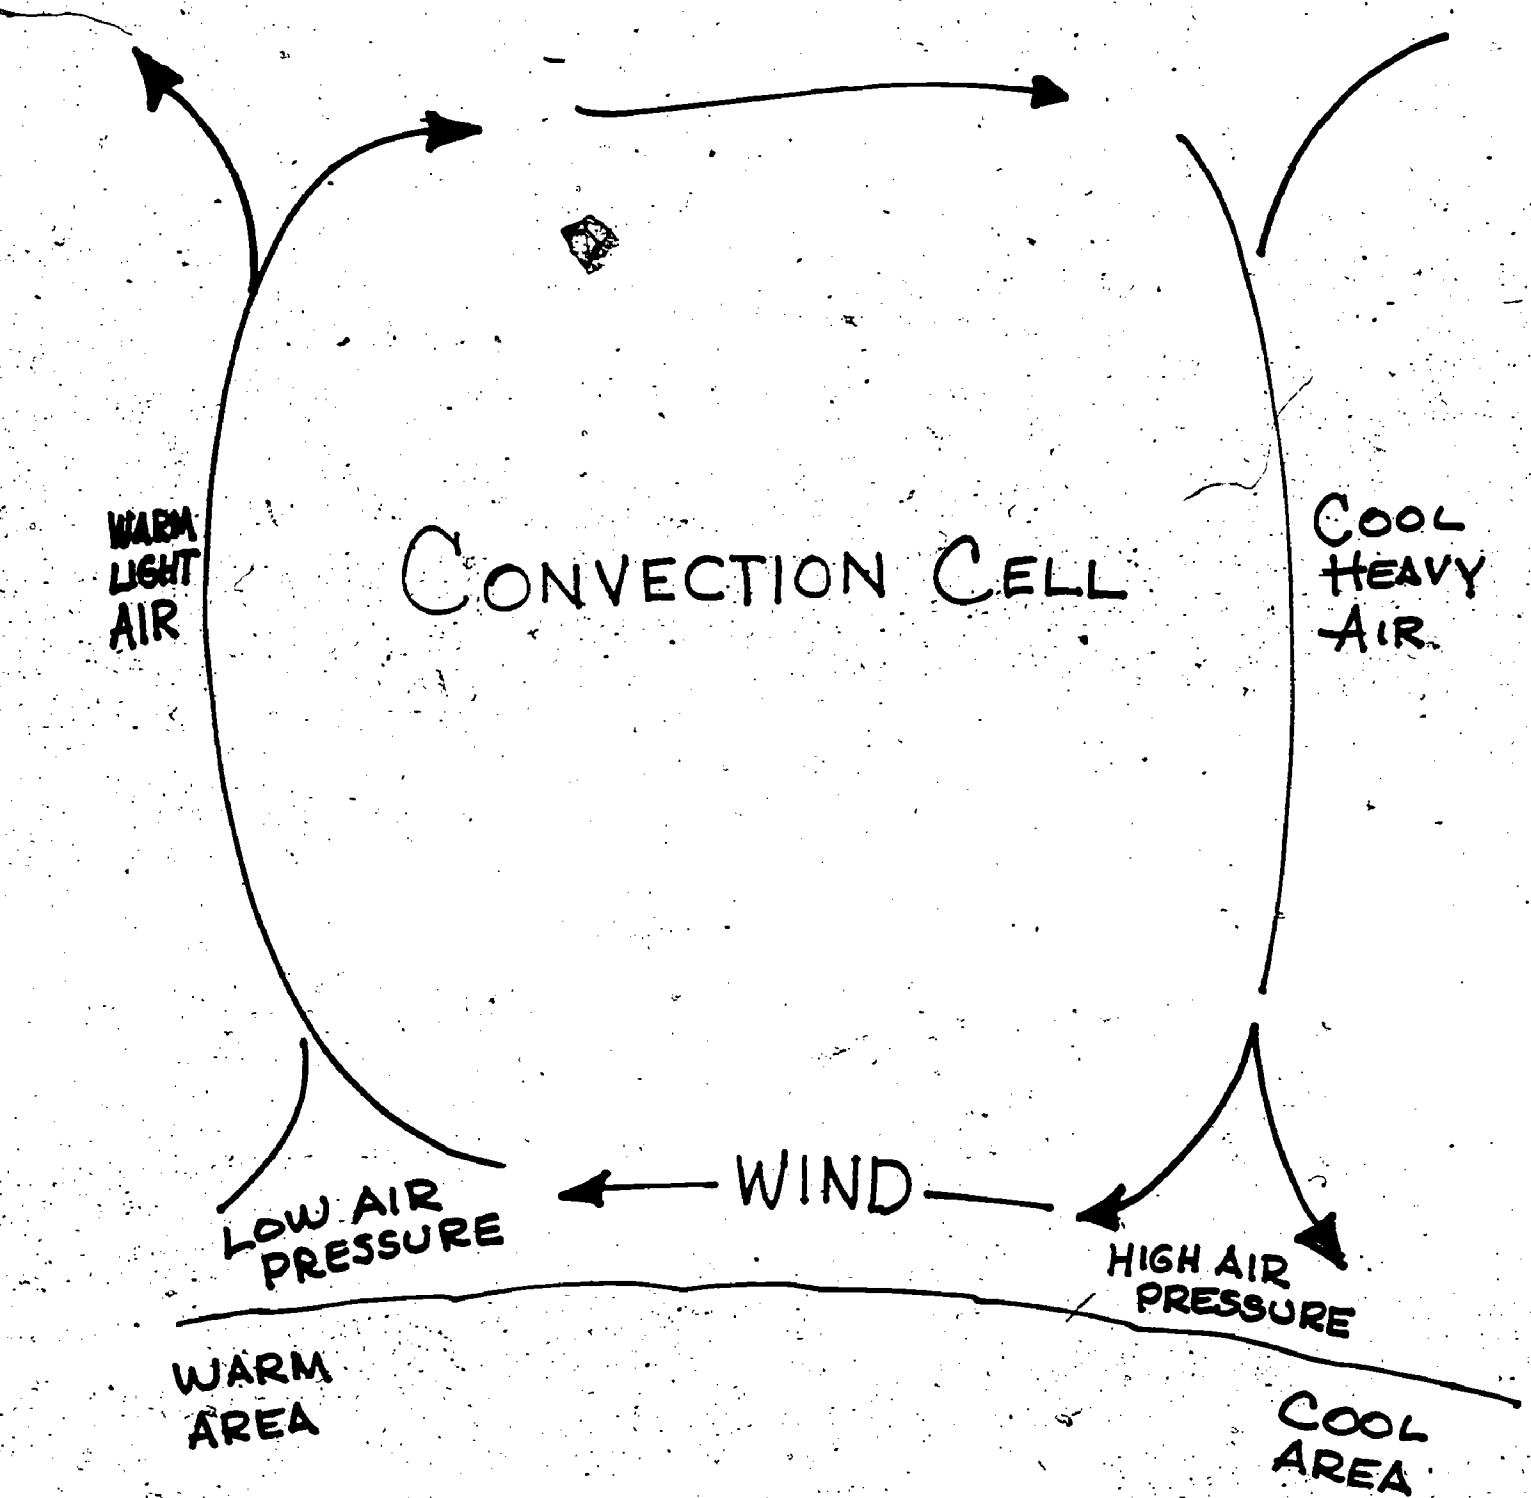 WARM
LIGHT
AIR
CONVECTION CELL
COOL
HEAVY
AIR
WIND
LOW AIR
PRESSURE
HIGH AIR
PRESSURE
WARM
AREA
COOL
AREA